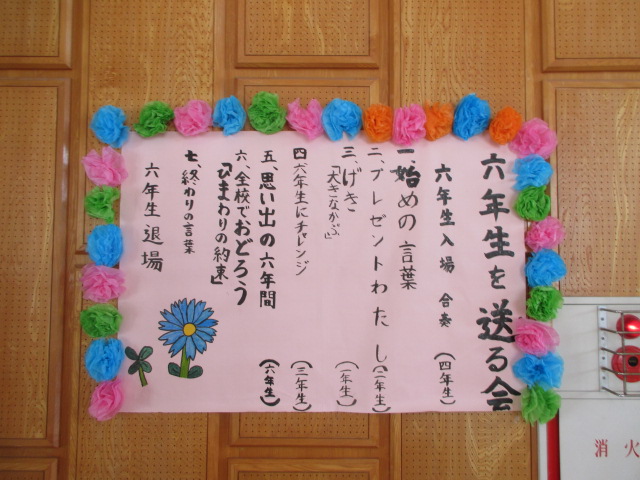 六年生を送る会
六年生入場 合奏 (四年生)
一、始めの言葉
二、プレゼントわたし (二年生)
三、げき (一年生)
「大きなかぶ」
四 六年生にチャレンジ (三年生)
五、思い出の六年間 (六年生)
六、全校でおどろう
「ひまわりの約束」
七、終わりの言葉
六年生 退場
消火